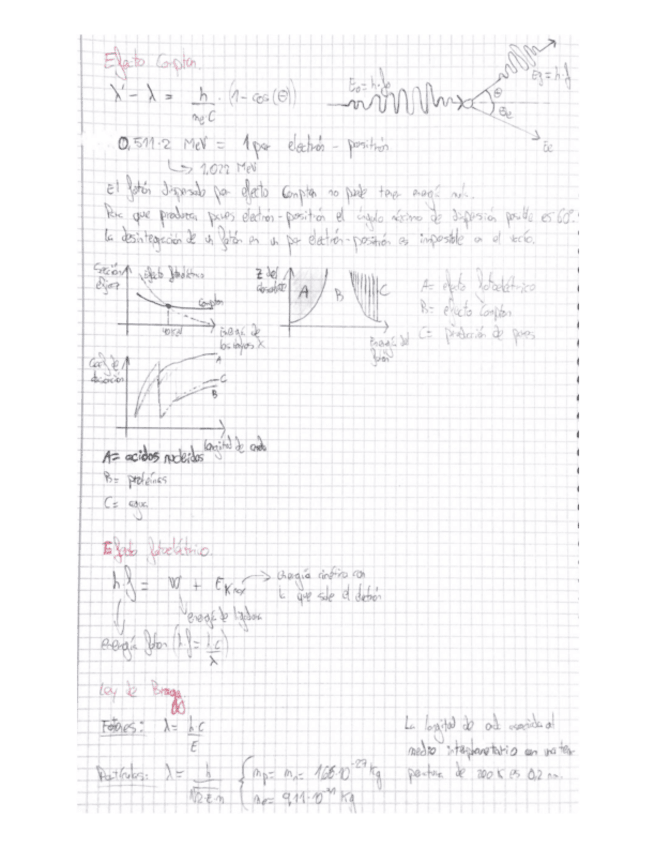 Efecto Compton.
λ' - λ = h / (me C) · (1 - cos(θ))
E0 = h·f0
Ef = h·f
θ
θe
Ee
0,511·2 MeV = 1 par electrón - positrón
→ 1,022 MeV
El fotón dispersado por efecto Compton no puede tener energía nula.
Para que produzca pares electrón-positrón el ángulo máximo de dispersión posible es 60º.
La desintegración de un fotón en un par electrón-positrón es imposible en el vacío.
Sección eficaz
efecto fotoeléctrico
Compton
Energía de los rayos X
Z del absorbente
A
B
C
Energía del fotón
A = efecto fotoeléctrico
B = efecto Compton
C = producción de pares
Coef. de
A
C
B
longitud de onda
A = acidos nucleidos
B = proteínas
C = agua
Efecto fotoeléctrico.
h·f = W + EKmax → energía cinética con
la que sale el electrón
energía de ligadura
energía fotón (h·f = h·c / λ)
Ley de Bragg
Fotones: λ = h·c / E
Partículas: λ = h / √2·E·m
mp = mn = 1,66·10^-27 Kg
me = 9,11·10^-31 Kg
La longitud de onda asociada al
medio interplanetario con una tem
peratura de 200 K es 0,2 nm.